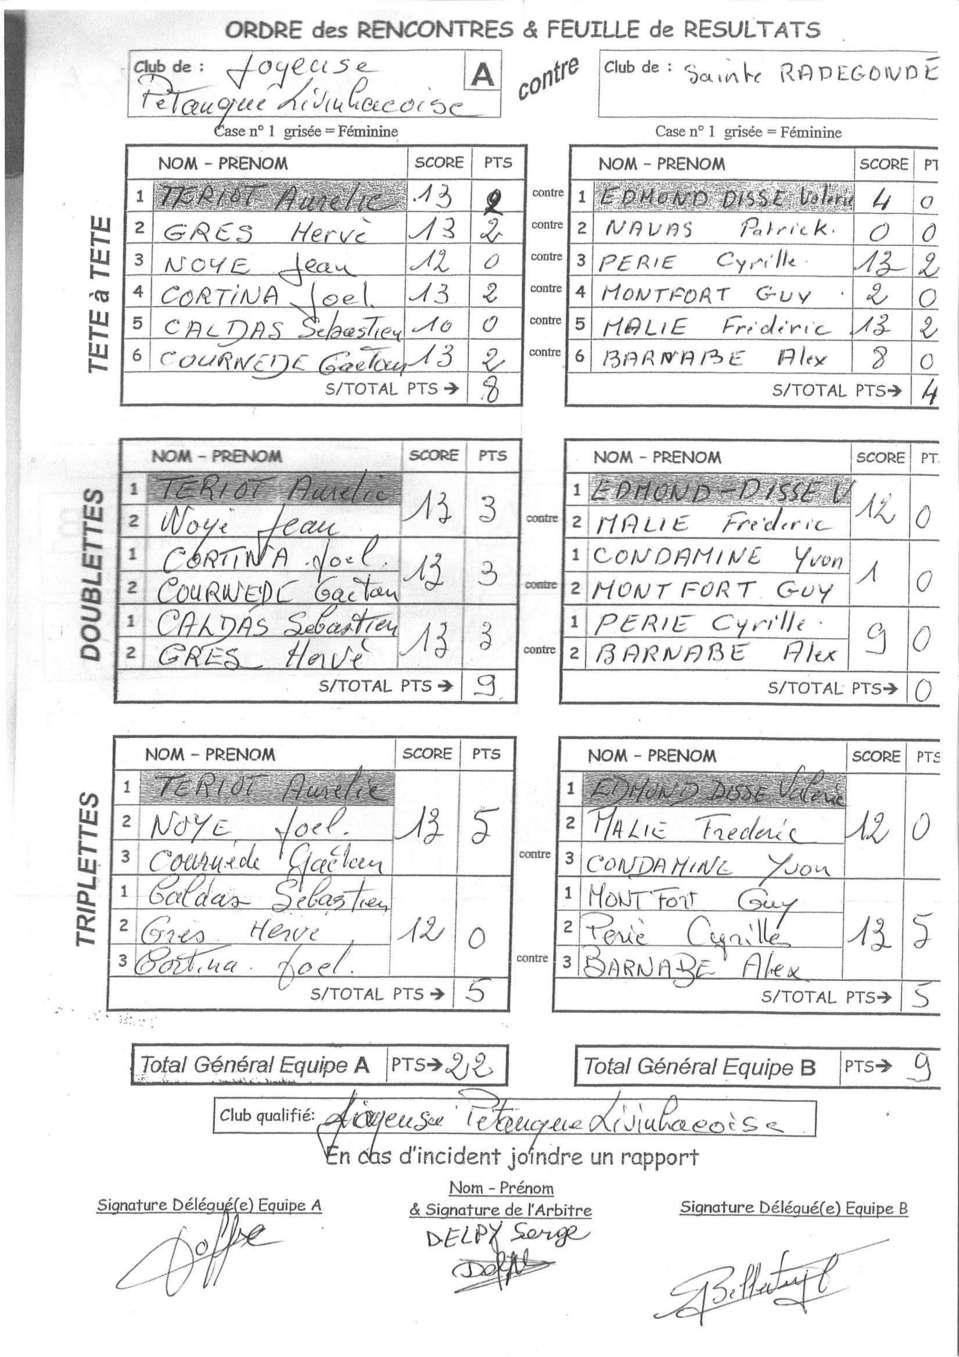 ORDRE des RENCONTRES & FEUILLE de RESULTATS
Club de : Joyeuse A contre Club de : Sainte RADEGONDE
Pétanque Livinhacoise
Case n° 1 grisée = Féminine Case n° 1 grisée = Féminine
TETE à TETE
NOM - PRENOM SCORE PTS NOM - PRENOM SCORE PT
1 TERIOT Aurelie 13 2 contre 1 EDMOND DISSE Valerie 4 0
2 GRES Hervè 13 2 contre 2 NAVAS Patrick. 0 0
3 NOYE Jean 12 0 contre 3 PERIE Cyrille. 13 2
4 CORTINA Joel. 13 2 contre 4 MONTFORT GUY . 2 0
5 CALDAS Sebastien 10 0 contre 5 MALIE Frédéric 13 2
6 COURNEDE Gaetan 13 2 contre 6 BARNABE Alex 8 0
S/TOTAL PTS → 8 S/TOTAL PTS→ 4
DOUBLETTES
NOM - PRENOM SCORE PTS NOM - PRENOM SCORE PT
1 TERIOT Aurelie 13 3 1 EDMOND-DISSE V 12 0
2 Noyé Jean contre 2 MALIE Frédéric
1 CORTINA Joel. 13 3 1 CONDAMINE Yvon 1 0
2 COURNEDE Gaetan contre 2 MONTFORT GUY
1 CALDAS Sebastien 13 3 1 PERIE Cyrille. 9 0
2 GRES Hervé contre 2 BARNABE Alex
S/TOTAL PTS → 9 S/TOTAL PTS→ 0
TRIPLETTES
NOM - PRENOM SCORE PTS NOM - PRENOM SCORE PTS
1 TERIOT Aurélie 13 5 1 EDMOND DISSE Valerie 12 0
2 NOYE Joel. 2 MALIE Frederic
3 Cournède Gaëtan contre 3 CONDAMINE Yvon
1 Caldas Sébastien 12 0 1 MONTFORT Guy 13 5
2 Grès Hervé 2 Periè Cyrille
3 Cortina. Joel. contre 3 BARNABE Alex
S/TOTAL PTS → 5 S/TOTAL PTS→ 5
Total Général Equipe A PTS→ 22 Total Général Equipe B PTS→ 9
Club qualifié: Joyeuse Pétanque Livinhacoise
En cas d'incident joindre un rapport
Nom - Prénom
Signature Délégué(e) Equipe A & Signature de l'Arbitre Signature Délégué(e) Equipe B
DELPY Serge